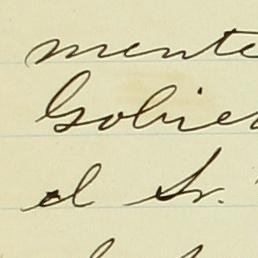 mente
Gobier
el Sr.